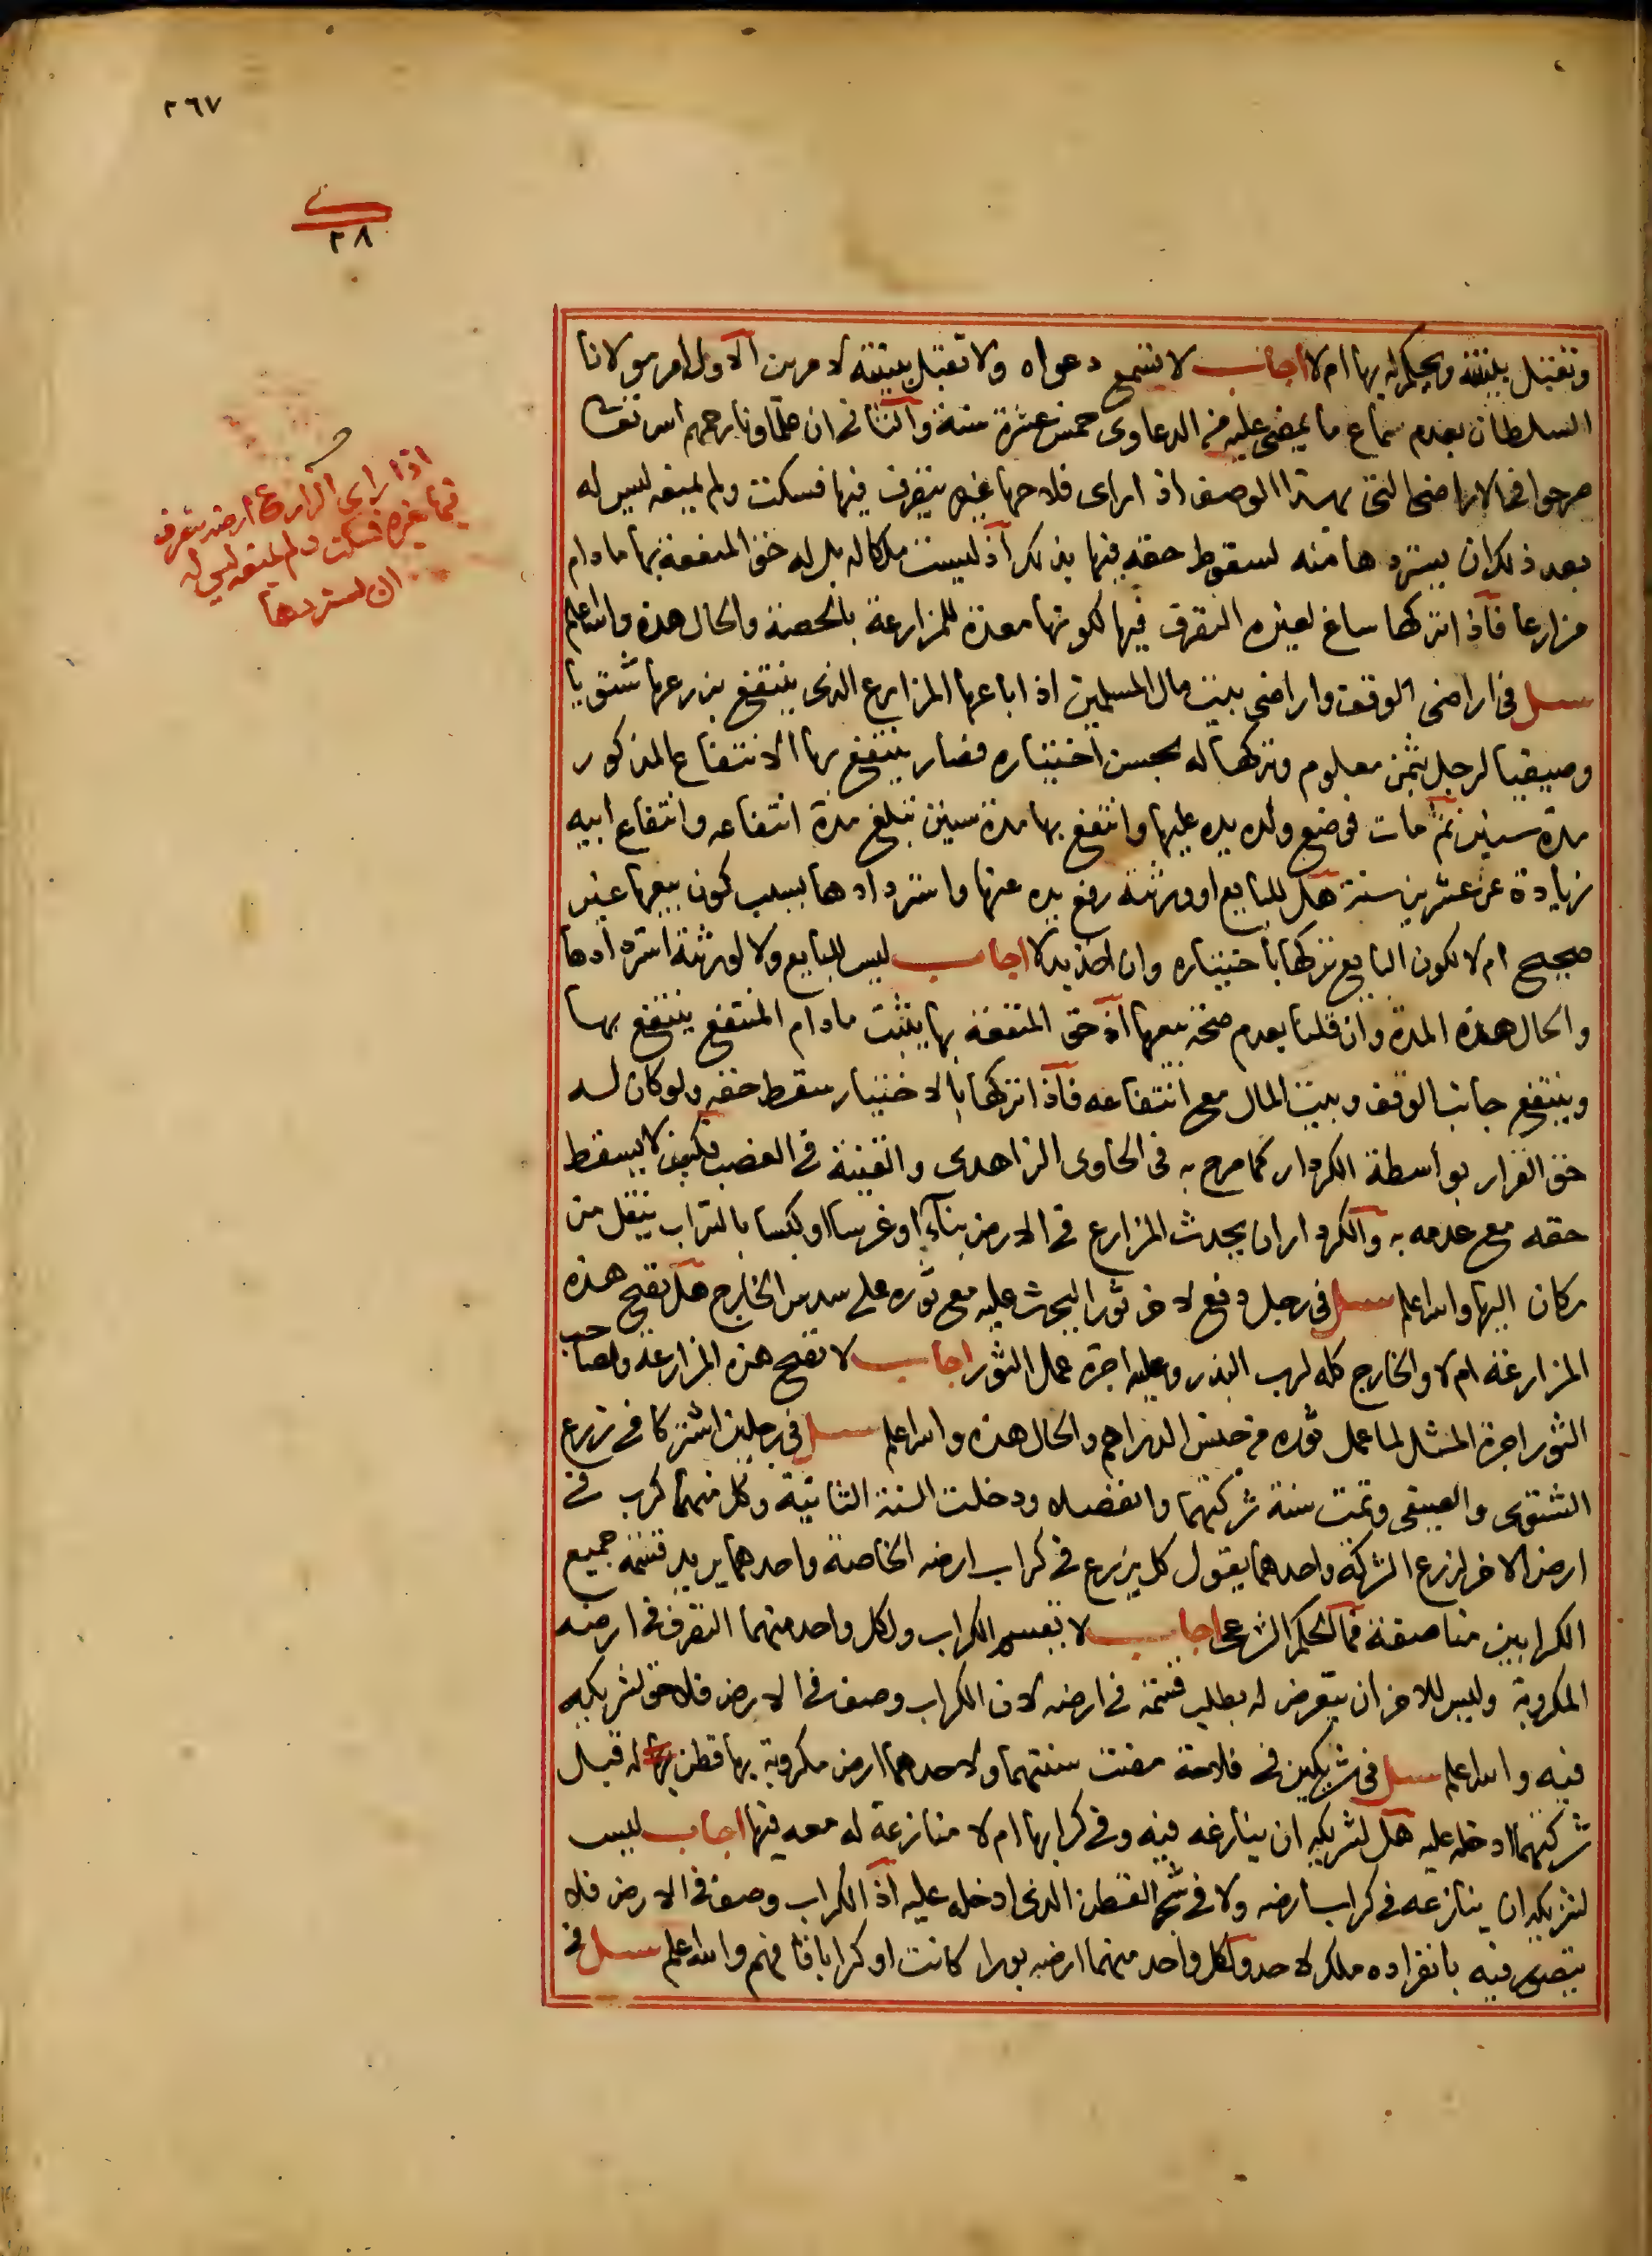 ٢٦٧
٢٨
وتقبل بينته ويحكم له بها ام لا اجاب لا تسمع دعواه ولا تقبل بينته لامرين الاول امر مولانا
السلطان بعدم سماع ما يمضى عليه من الدعاوى خمس عشرة سنة والثانى ان علماونا رحمهم الله تعالى
صرحوا فى الاراضى التى بهذا الوصف اذا راى فلاحها غيره يتصرف فيها فسكت ولم يمنعه ليس له
بعد ذلك ان يستردها منه لسقوط حقه فيها بذلك اذ ليست ملكا له بل له حق المنفعة بها ما دام
مزارعا فاذا تركها ساغ لغيره التصرف فيها لكونها معدة للمزارعة بالحصة والحال هذه والله اعلم
سيل فى اراضى الوقف واراضى بيت مال المسلمين اذا باعها المزارع الذى ينتفع بزرعها شتويا
وصيفيا لرجل بثمن معلوم وتركها له بحسن اختياره فصار ينتفع بها الانتفاع المذكور
مدة سنين ثم مات فوضع ولده يده عليها وانتفع بها مدة سنين تبلغ مدة انتفاعه وانتفاع ابيه
زيادة عن عشرين سنة هل للبايع او ورثته رفع يده عنها واستردادها بسبب كون بيعها غير
صحيح ام لا لكون البايع تركها باختياره وان اخذ بدلا اجاب ليس للبايع ولا لورثته استردادها
والحال هذه المدة وان قلنا بعدم صحة بيعها اذ حق المنفعة بها يثبت ما دام المنتفع ينتفع بها
وينتفع جانب الوقف وبيت المال مع انتفاعه فاذا تركها بالاختيار سقط حقه ولو كان له
حق القرار بواسطة الكردار كما صرح به فى الحاوى الزاهدى والقنية فى الغصب فكيف لا يسقط
حقه مع عدمه به والكردار ان يحدث المزارع فى الارض بناء او غرسا او كبسا بالتراب ينقل من
مكان اليها والله اعلم سيل فى رجل دفع لاخر ثورا ليحرث عليه مع ثوره على سدس الخارج هل تصح هذه
المزارعة ام لا والخارج كله لرب البذر وعليه اجرة عمل الثور اجاب لا تصح هذه المزارعة ولصاحب
الثور اجرة المثل لما عمل ثوره من جنس الدراهم والحال هذه والله اعلم سيل فى رجلين اشتركا فى زرع
الشتوى والصيفى وتمت سنة شركتهما وانفصلا ودخلت السنة الثانية وكل منهما كرب فى
ارض الاخر لزرع الشركة واحدهما يقول كل يزرع فى كراب ارضه الخاصة واحدهما يريد قسمة جميع
الكرابين مناصفة فما الحكم الشرعى اجاب لا يقسم الكراب ولكل واحد منهما التصرف فى ارضه
المكروبة وليس للاخر ان يتعرض له بطلب قسمة فى ارضه لان الكراب وصف فى الارض فلا حق لشريكه
فيه والله اعلم سيل فى شريكين فى فلاحة مضت سنتهما ولاحدهما ارض مكروبة بها قطن له قبل
شركتهما ادخله عليه هل لشريكه ان ينازعه فيه وفى كرابها ام لا منازعة له معه فيها اجاب ليس
لشريكه ان ينازعه فى كراب ارضه ولا فى شجر القطن الذى ادخله عليه اذ الكراب وصف فى الارض فلا
يتصور فيه بانفراده ملك لاحد ولكل واحد منهما ارضه بورا كانت او كرابا فافهم والله اعلم سيل فى
اذا راى الزارع ارضه يتصرف
فيها غيره فسكت ولم يمنعه ليس له
ان يستردها